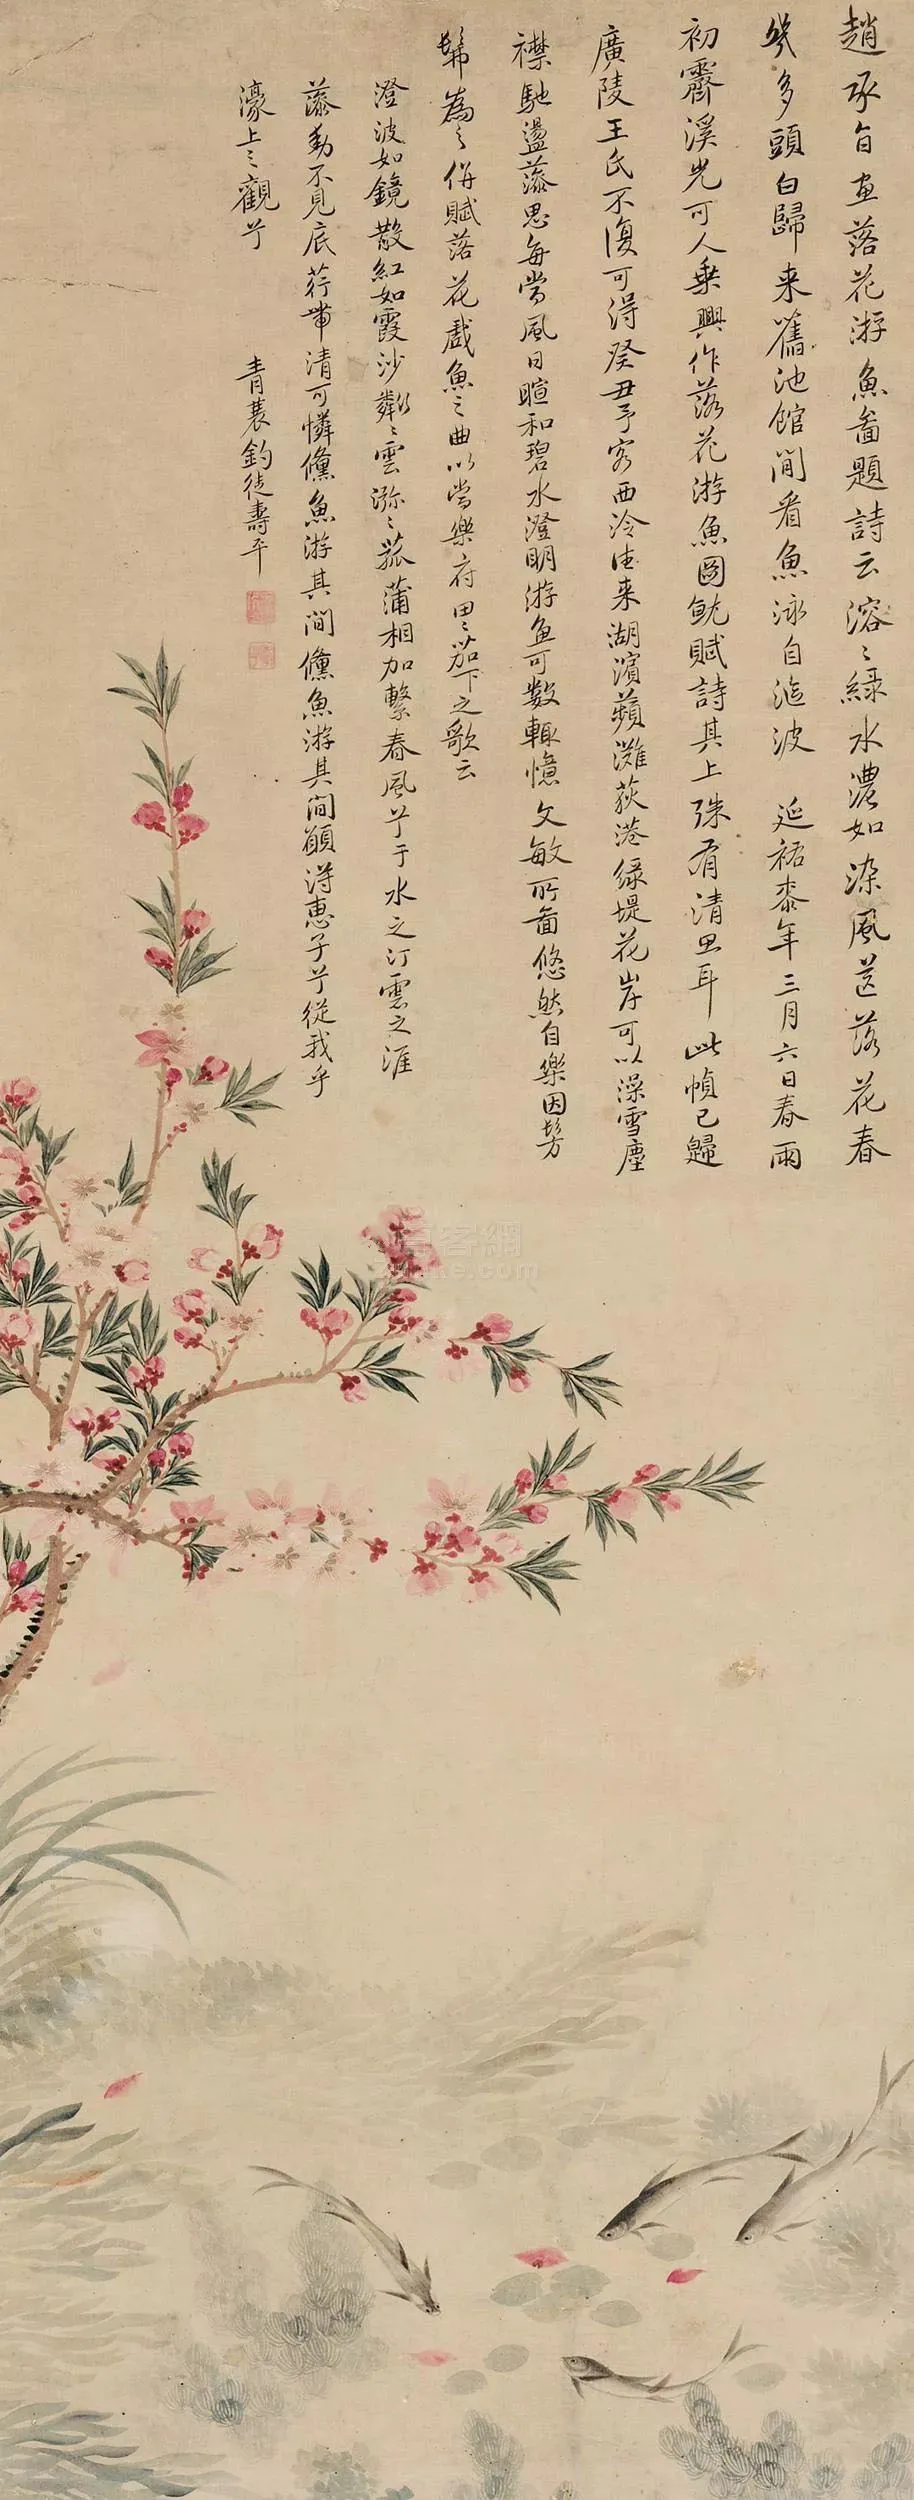 趙承旨畫落花游魚圖題詩云溶溶綠水濃如染風送落花春
幾多頭白歸来舊池館閒看魚泳自迤波 延祐柒年三月六日春雨
初霽溪光可人乗興作落花游魚圖就賦詩其上殊有清思耳 此幀已歸
廣陵王氏不復可得癸丑予客西泠往来湖濱蘋灘荻港緑堤花岸可以澡雪塵
襟馳盪藻思每當風日暄和碧水澄明游魚可数輒憶文敏所圖悠然自樂因髣
髴為之併賦落花戲魚之曲以當樂府田田茄下之歌云
澄波如鏡散紅如霞沙粼粼以雲瀰瀰菰蒲相加繫春風兮于水之汀雲之涯
藻動不見底荇帶清可憐儵魚游其間儵魚游其間顧淂惠子兮從我乎
濠上之觀兮
青蓑釣徒壽平